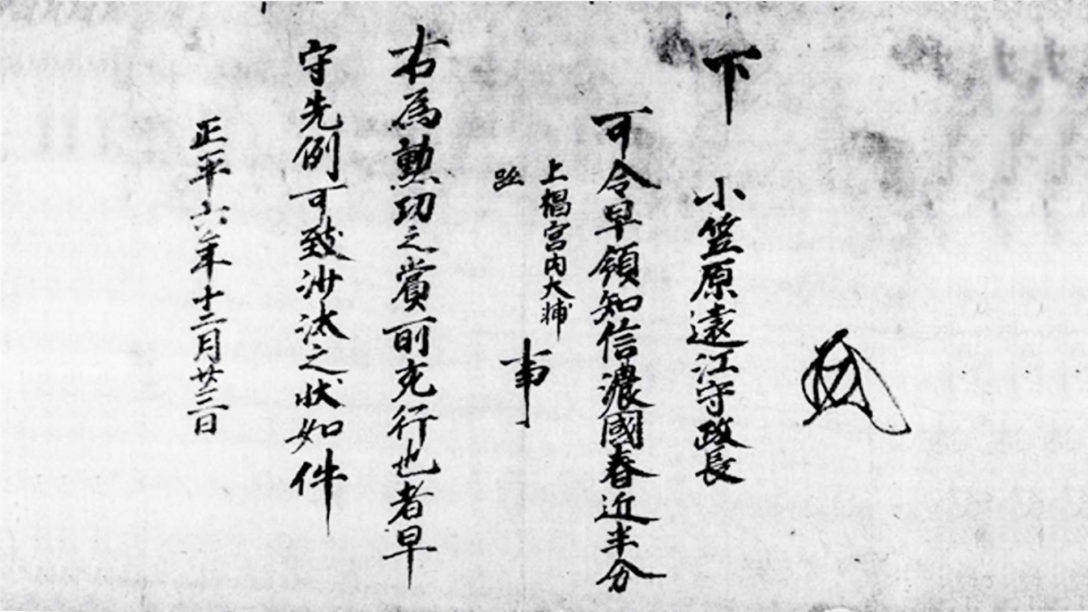 下
小笠原遠江守政長
可令早領知信濃國春近半分
上椙宮内大輔
跡
事
右為勲功之賞所充行也者早
守先例可致沙汰之状如件
正平六年十二月廿三日